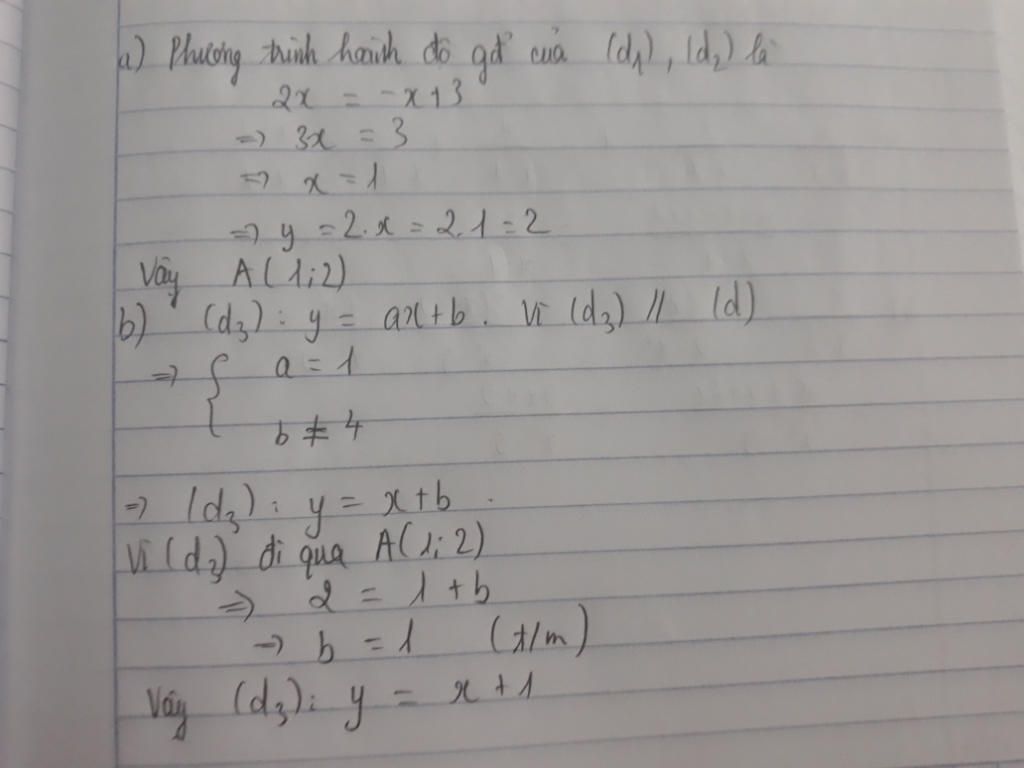 a) Phương trình hoành độ gđ của (d₁), (d₂) là
2x = -x+3
=> 3x = 3
=> x = 1
=> y = 2.x = 2.1 = 2
Vậy A(1;2)
b) (d₃): y = ax+b. Vì (d₃) // (d)
=> { a = 1
b ≠ 4
=> (d₃): y = x+b.
Vì (d₃) đi qua A(1;2)
=> 2 = 1 + b
=> b = 1 (t/m)
Vậy (d₃): y = x + 1